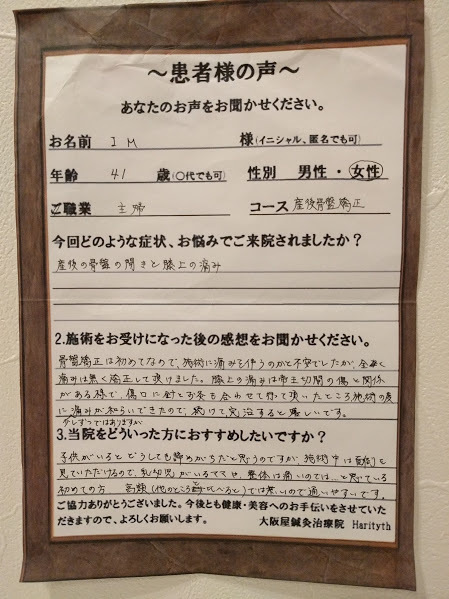 ～患者様の声～
あなたのお声をお聞かせください。
お名前 I M 様(イニシャル、匿名でも可)
年齢 41 歳(〇代でも可) 性別 男性・女性
ご職業 主婦 コース 産後骨盤矯正
今回どのような症状、お悩みでご来院されましたか？
産後の骨盤の開きと膝上の痛み
2.施術をお受けになった後の感想をお聞かせください。
骨盤矯正は初めてなので、施術に痛みを伴うのかと不安でしたが、全く
痛みは無く矯正して頂けました。膝上の痛みは帝王切開の傷と関係
がある様で、傷口に針とお灸を合わせて行って頂いたところ施術の度
に痛みが和らいできたので、続けて完治すると嬉しいです。
少しずつではありますが
3.当院をどういった方におすすめしたいですか？
子供がいるとどうしても諦めがちだと思うのですが、施術中は
見ていただけるので、乳幼児がいるママや、整体は痛いのでは…と思っている
初めての方 高額(他のところと比べると)では無いので通いやすいです。
ご協力ありがとうございました。今後とも健康・美容へのお手伝いをさせていた
だきますので、よろしくお願いします。 大阪屋鍼灸治療院 Harityth